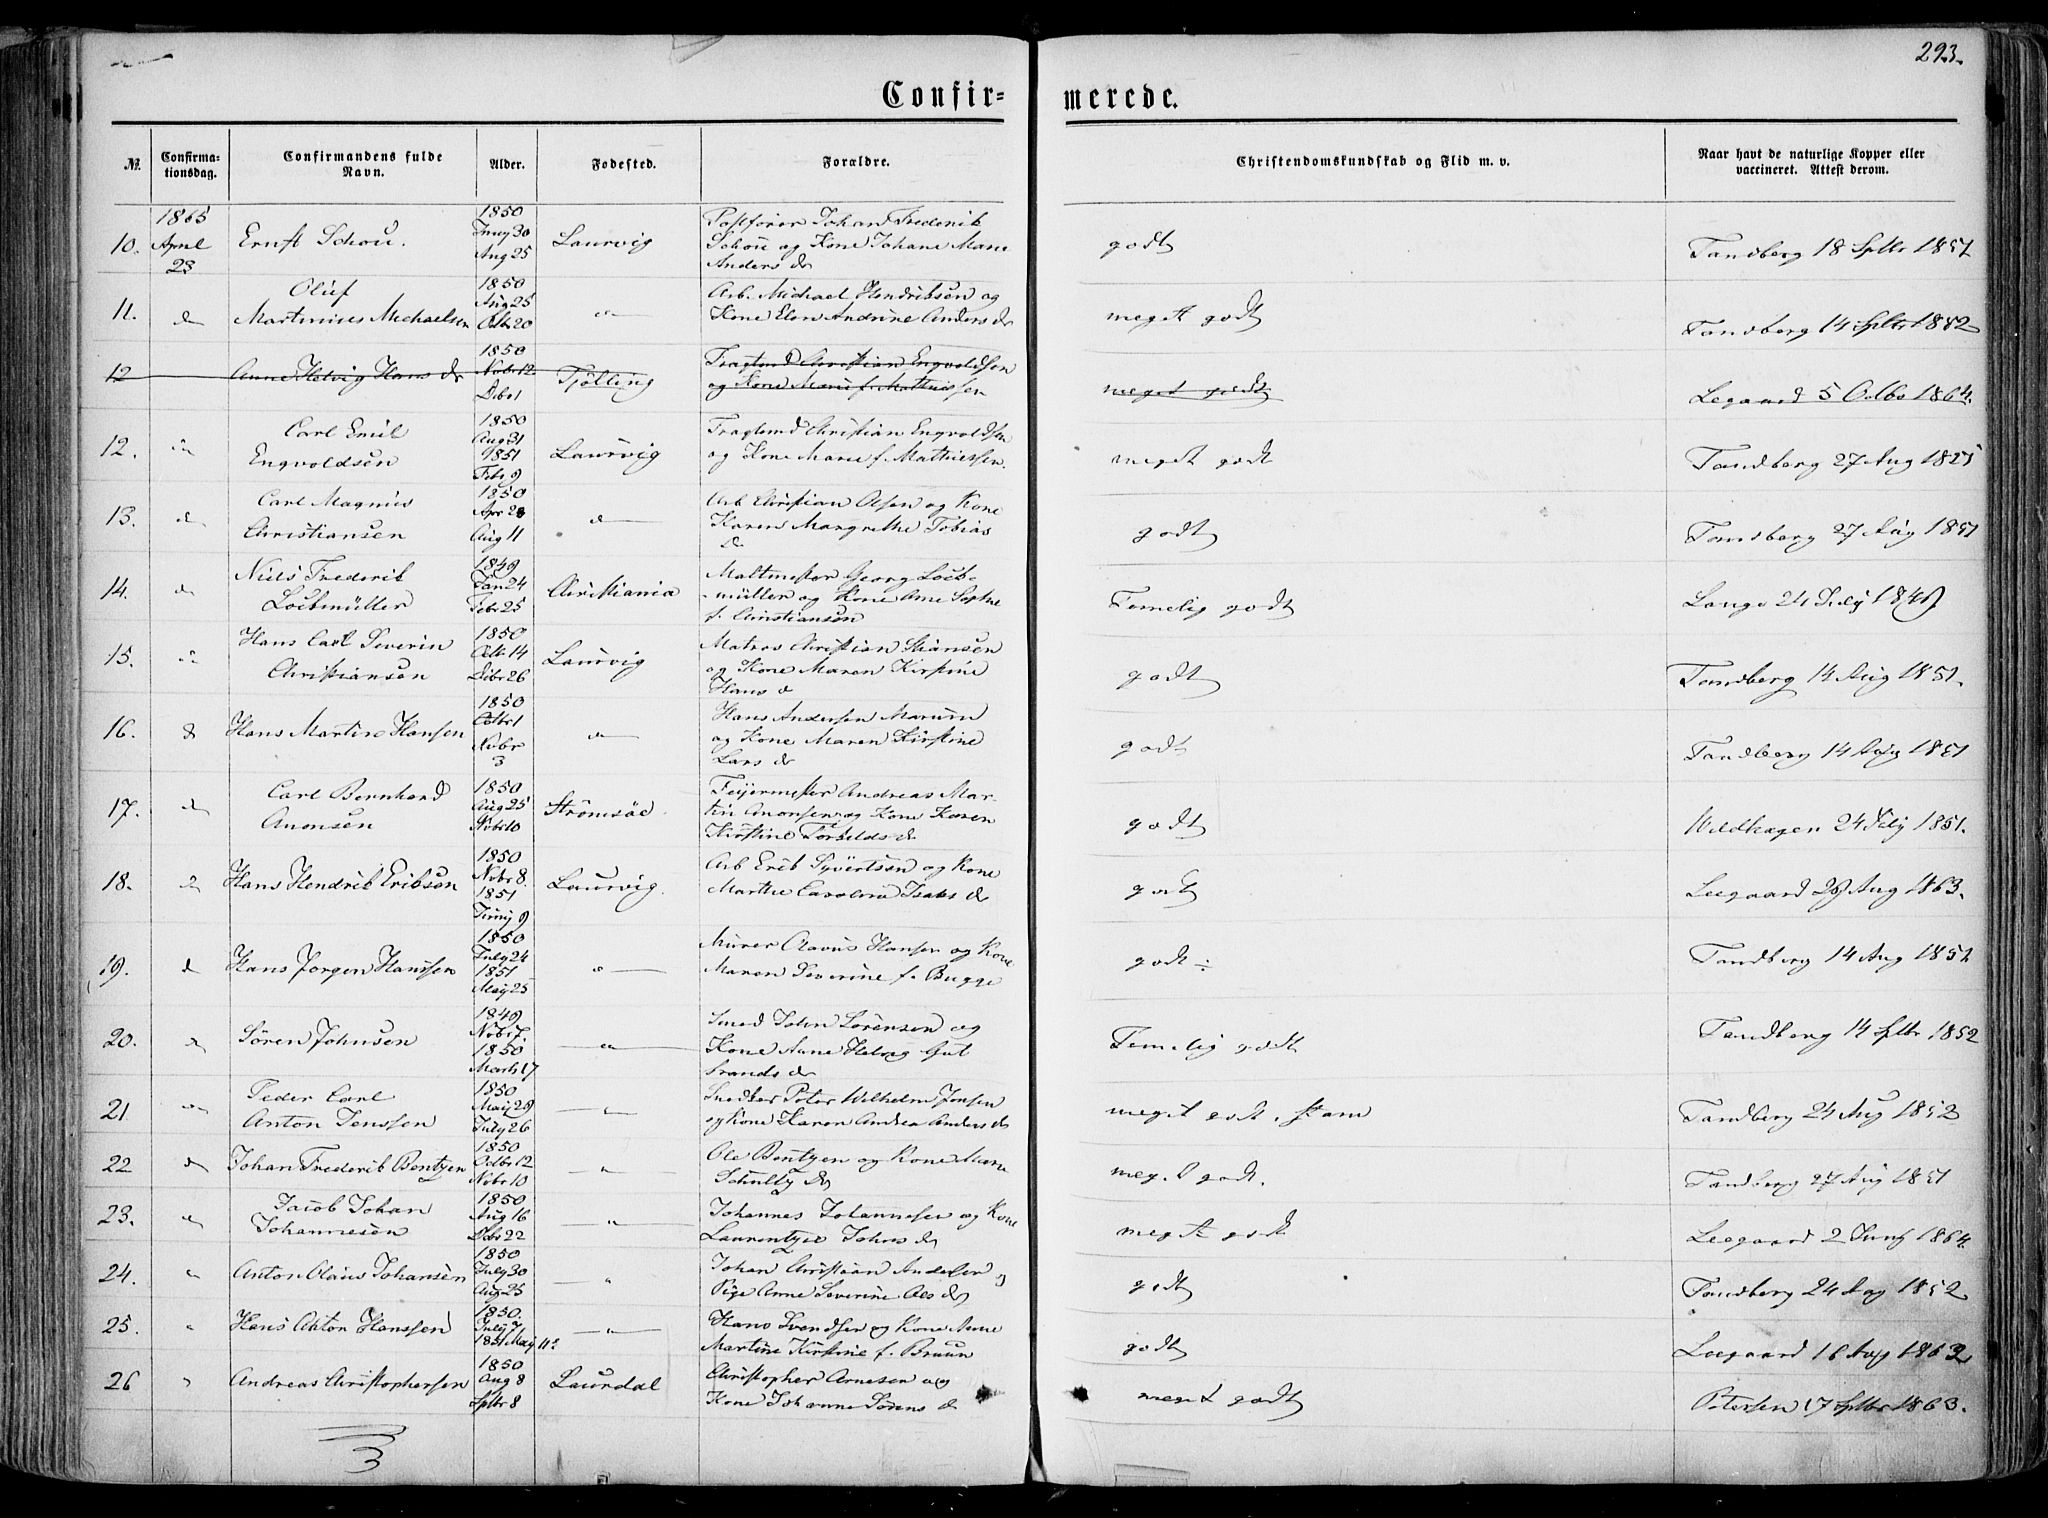 293.
Confir=
merede.
№.
Confirma-
tionsdag.
Confirmandens fulde
Navn.
Alder.
Fødested.
Forældre.
Christendomskundskab og Flid m. v.
Naar havt de naturlige Kopper eller
vaccineret. Attest derom.
1865
10. April
23
Ernst Schou.
1850
Juny 30
Aug 25
Laurvig
Postfører Johan Frederik
Schou og Kone Johane Marie
Anders d
godt
Tandberg 18 Sptbr 1851
11. d
Oluf
Martinius Michaelsen
1850
Aug 25
Octbr 20
d
Arb. Michael Hendriksen og
Kone Elen Andrine Anders d
meget godt
Tandberg 14 Sptbr 1852
12
Anne Helvig Hans d
1850
Novbr 12
Dcbr 1
Tjølling
Fragtmd Christian Engvoldsen
og Kone Marie f. Mathiessen
meget godt
Legaard 5 Octbr 1864.
12. d
Carl Emil
Engvoldsen
1850
Aug 31
1851
Febr 9
Laurvig
Fragtmd Christian Engvoldsen
og Kone Marie f. Mathiessen.
meget godt
Tandberg 27 Aug 1851
13. d
Carl Magnus
Christiansen
1850
Apr 28
Aug 11
d
Arb Christian Olsen og Kone
Karen Margrethe Tobias
d
godt
Tandberg 27 Aug 1851
14. d
Niels Frederik
Loebmüller
1849
Jan 24
Febr 25
Christiania
Maltmester Georg Loeb-
müller og Kone Ane Sophie
f. Christiansen
Temelig godt
Lange 24 July 1849
15. d
Hans Carl Severin
Christiansen
1850
Octbr 14
Dcbr 26
Laurvig
Matros Christian Stiansen
og Kone Maren Kirstine
Hans d
godt
Tandberg 14 Aug 1851.
16. d
Hans Martin Hansen
1850
Octbr 1
Novbr
3
d
Hans Andersen
og Kone Maren Kirstine
Lars d
godt
Tandberg 14 Aug 1851
17. d
Carl Bernhard
Anonsen
1850
Aug 25
Novbr 10
Strömsöe
Feiermester Andreas Mar-
tin Anonsen og Kone Karen
Kirstine Torkilds d
godt
Wildhagen 24 July 1851.
18. d
Hans Hendrik Eriksen
1850
Novbr 8.
1851
Juny 9
Laurvig.
Arb Erik Syvertsen og Kone
Marthe Caroline Isaks d
godt
Leegaard 29 Aug 1863.
19. d
Hans Jørgen Hanssen
1850
July 24
1851
May 25
d
Murer Olavus Hansen og Kone
Maren Severine f. Bugge
godt
Tandberg 14 Aug 1852
20. d
Søren Johnsen
1849
Novbr 7.
1850
March 17
d
Smed John Sørensen og
Kone Anne Helvig Gul
brands d
Temelig godt
Tandberg 14 Sptbr 1852
21 d
Peder Carl
Anton Jenssen
1850
May 29
July 26
d
Snedker Peter Wilhelm Jensen
og Kone Karen Andrea Anders d
meget godt
Tandberg 24 Aug 1852
22 d
Johan Frederik Bentzen
1850
Octbr 12
Novbr 10
d
Ole Bentzen og Kone Marie
Schultz d
meget godt.
Tandberg 27 Aug 1851
23. d
Jacob Johan
Johannesen
1850
Aug 16
Dcbr 22
d
Johannes Johannesen og Kone
Laurentze Johns d
meget godt
Leegaard 2 Juny 1864.
24. d
Anton Olaus Johansen
1850
July 30
Aug 25
d
Johan Christian Andersen og
Pige Anne Severine Ols d
godt
Tandberg 24 Aug 1852
25. d
Hans Anton Hanssen
1850
July 7
1851 May 11
d
Hans Svendsen og Kone Anne
Martine Kirstine f. Bruun
godt
Leegaard 16 Aug 1863
26 d
Andreas Christophersen
1850
Aug 8
Sptbr 8
Laurdal
Christopher Arnesen og
Kone Johanne Sörens d
meget godt
Petersen 17 Sptbr 1863.